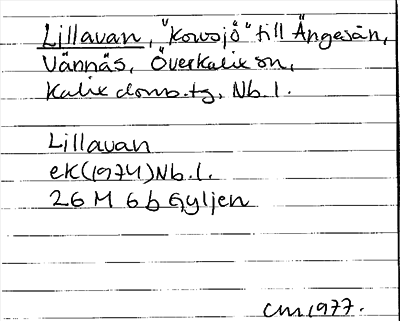 Lillavan, "korsjö" till Ängesån,
Vännäs, Överkalix sn,
Kalix doms.tg, Nb. l.
Lillavan
ek(1974)Nb.l.
26 M 6b Gyljen
CM 1977.